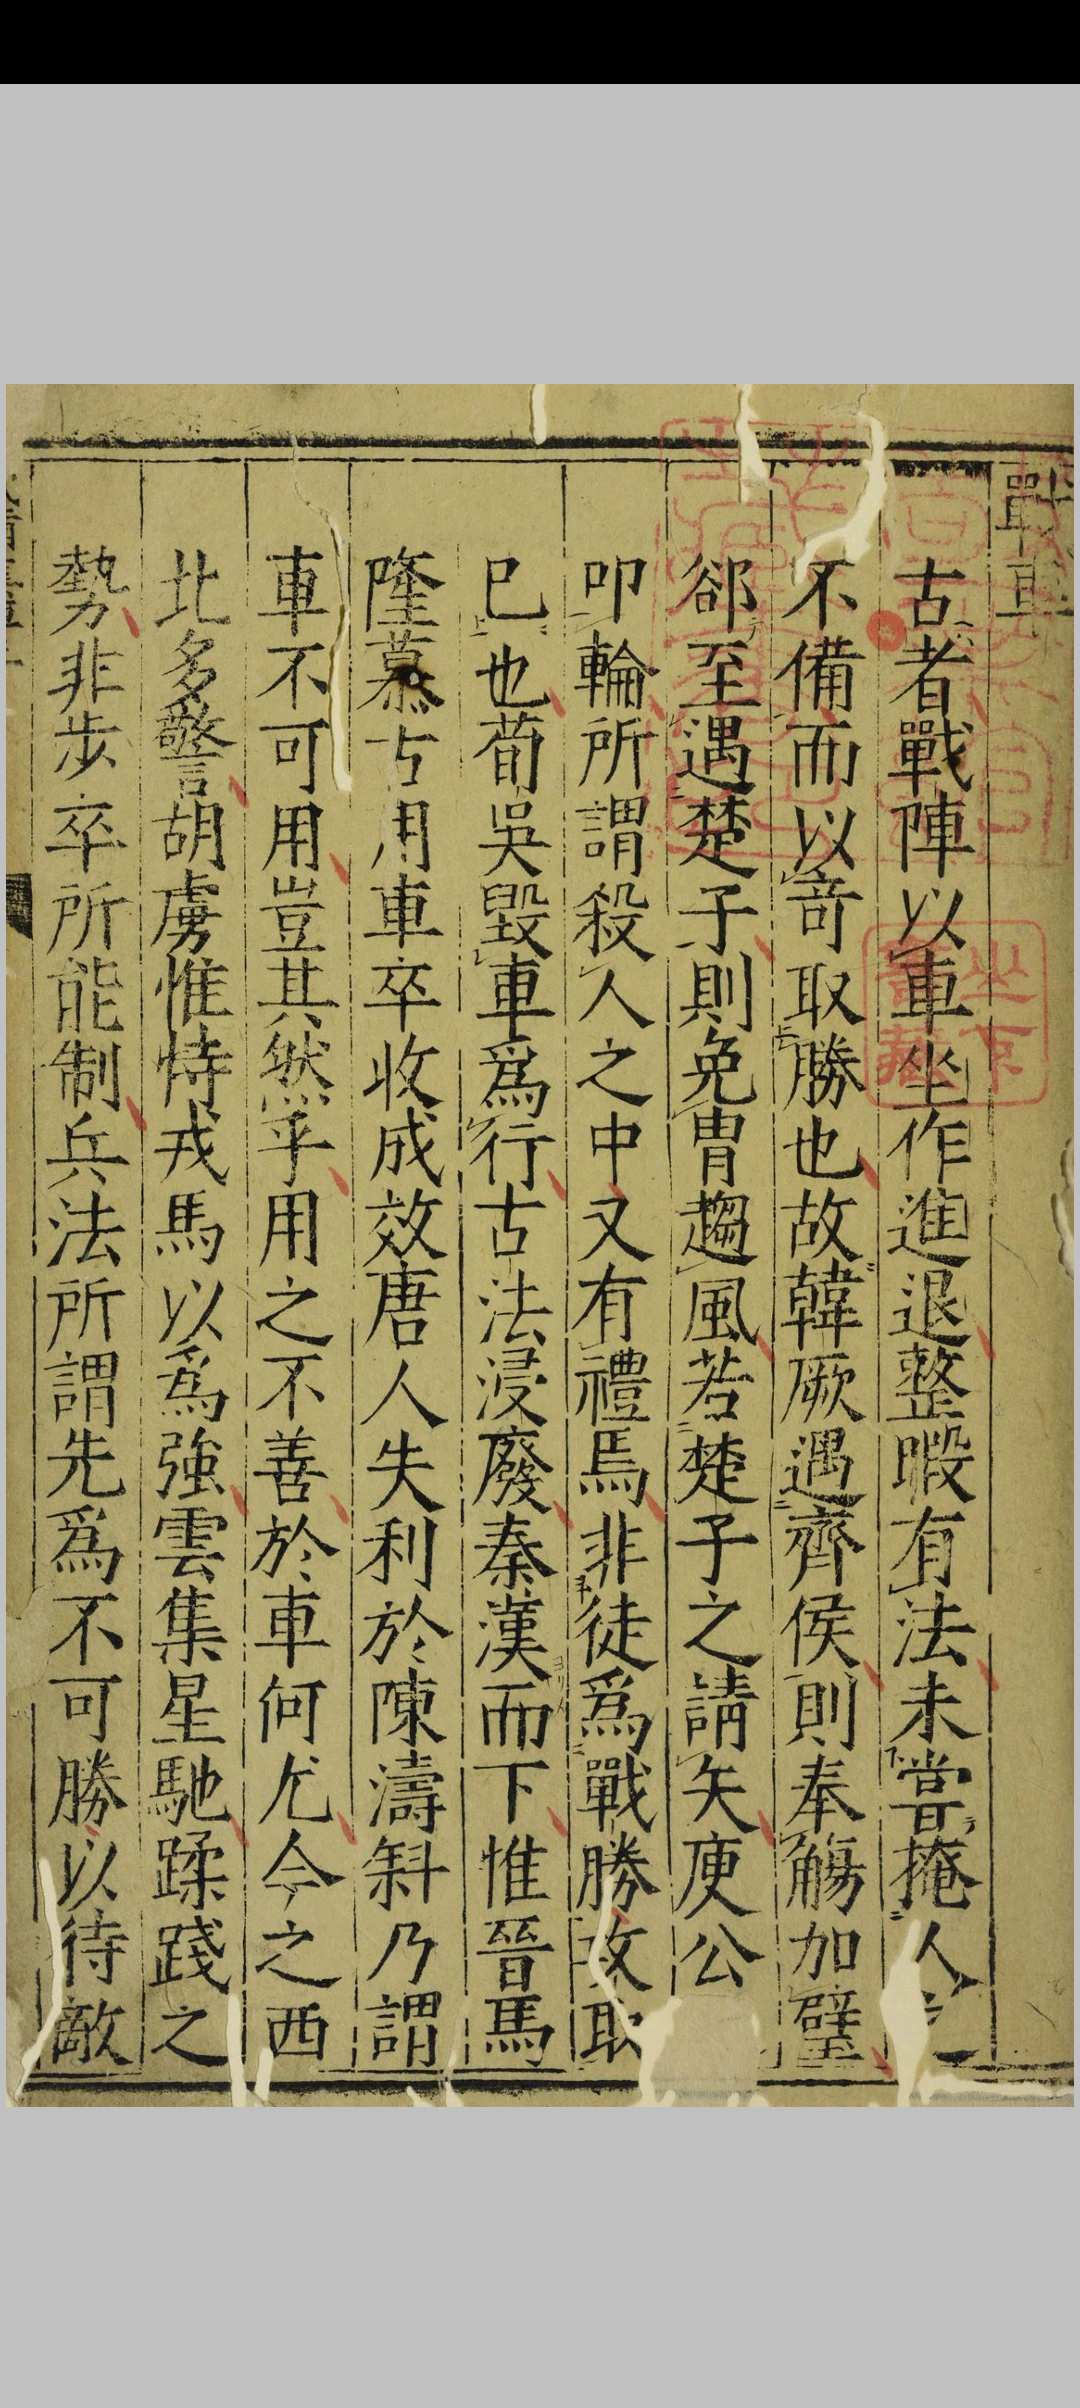 戰車
古者戰陣以車坐作進退整暇有法未嘗掩人之
不備而以竒取勝也故韓厥遇齊侯則奉觴加璧
郤至遇楚子則免胄趨風若楚子之請矢庾公
叩輪所謂殺人之中又有禮焉非徒爲戰勝攻取
巳也荀吳毀車爲行古法浸廢秦漢而下惟晉馬
隆慕古用車卒收成效唐人失利於陳濤斜乃謂
車不可用豈其然乎用之不善於車何尤今之西
北多警胡虜惟恃戎馬以爲強雲集星馳蹂踐之
勢非步卒所能制兵法所謂先爲不可勝以待敵